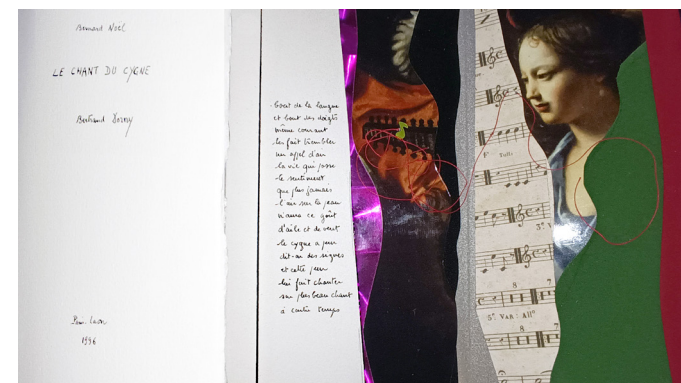 Bernard Noël
LE CHANT DU CYGNE
Bertrand Dorny
1996
bout de la langue
et bout des doigts
même courant
les fait trembler
un appel d'air
la vie qui passe
le sentiment
que plus jamais
l'air sur la peau
n'aura ce goût
d'aile et de vent
le cygne a peur
dit-on des signes
et cette peur
lui fait chanter
son plus beau chant
à contre temps
Fº Tutti
3º. V
8 8
5º. VAR: Allº
8 8